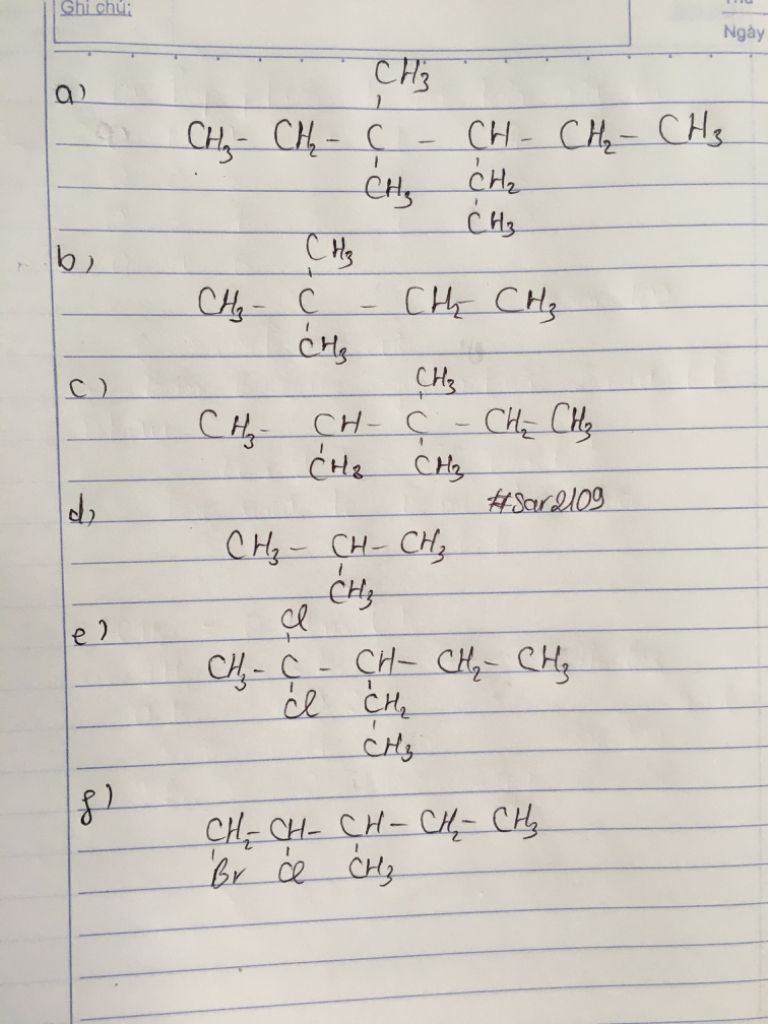 Ghi chú:
Ngày
a)
CH3
CH3- CH2- C - CH- CH2- CH3
CH3 CH2
CH3
b)
CH3
CH3- C - CH2- CH3
CH3
c)
CH3
CH3- CH- C - CH2- CH3
CH3 CH3
#Sar2109
d)
CH3- CH- CH3
CH3
Cl
e)
CH3- C - CH- CH2- CH3
Cl CH2
CH3
g)
CH2- CH- CH- CH2- CH3
Br Cl CH3